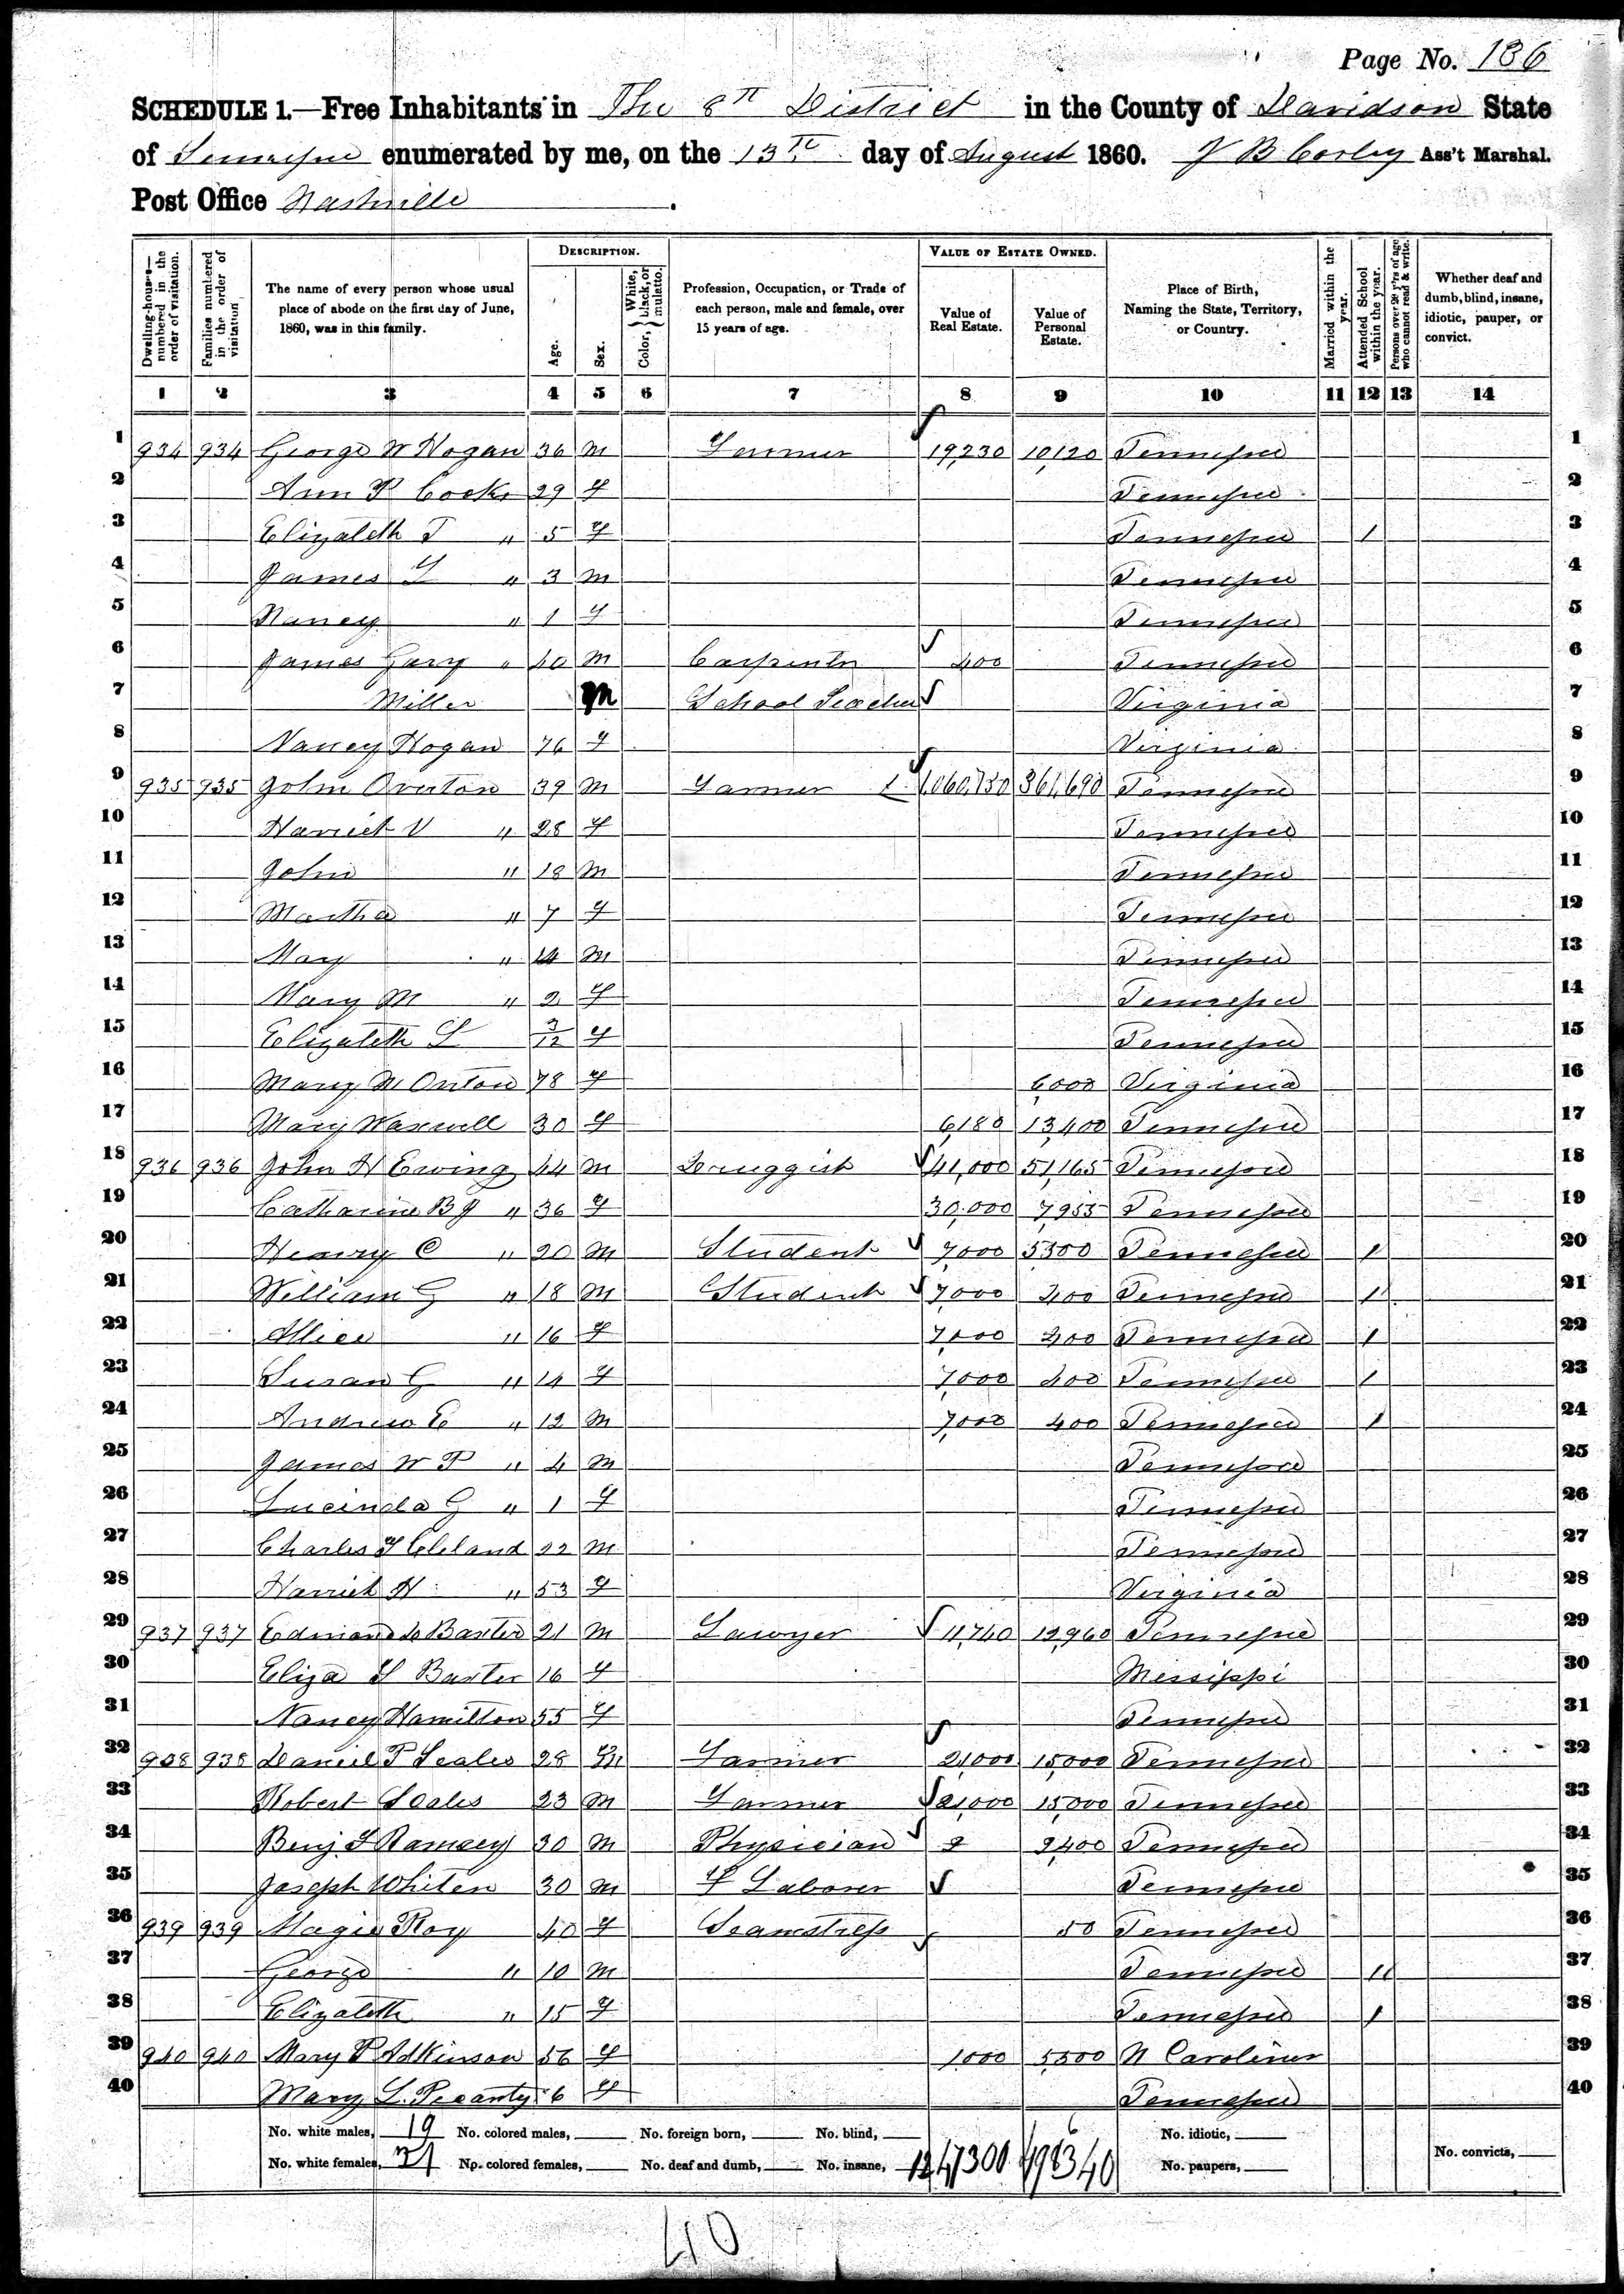 Page No. 136
SCHEDULE 1.—Free Inhabitants in The 8th District in the County of Davidson State
of Tennessee enumerated by me, on the 13th day of August 1860. J B Corley Ass't Marshal.
Post Office Nashville
Dwelling-houses—numbered in the order of visitation.
Families numbered in the order of visitation.
The name of every person whose usual place of abode on the first day of June, 1860, was in this family.
DESCRIPTION.
Age.
Sex.
Color, { White, black, or mulatto.
Profession, Occupation, or Trade of each person, male and female, over 15 years of age.
VALUE OF ESTATE OWNED.
Value of Real Estate.
Value of Personal Estate.
Place of Birth, Naming the State, Territory, or Country.
Married within the year.
Attended School within the year.
Persons over 20 y'rs of age who cannot read & write.
Whether deaf and dumb, blind, insane, idiotic, pauper, or convict.
1 2 3 4 5 6 7 8 9 10 11 12 13 14
1 934 934 George W Hogan 36 m Farmer 19,230 10,120 Tennessee 1
2 Ann P Cook 29 f Tennessee 2
3 Elizabeth T " 5 f Tennessee / 3
4 James L " 3 m Tennessee 4
5 Nancy " 1 f Tennessee 5
6 James Gary " 40 m Carpenter 400 Tennessee 6
7 Miller m School Teacher Virginia 7
8 Nancy Hogan 76 f Virginia 8
9 935 935 John Overton 39 m Farmer 1,060,750 361,690 Tennessee 9
10 Harriet V " 28 f Tennessee 10
11 John " 18 m Tennessee 11
12 Martha " 7 f Tennessee 12
13 May " 14 m Tennessee 13
14 Mary M " 2 f Tennessee 14
15 Elizabeth L 3/12 f Tennessee 15
16 Mary M Onton 78 f 6,000 Virginia 16
17 Mary Maxwell 30 f 6,180 13,400 Tennessee 17
18 936 936 John H Ewing 44 m Druggist 41,000 51,165 Tennessee 18
19 Catharine B J " 36 f 30,000 7,955 Tennessee 19
20 Henry C " 20 m Student 7,000 5300 Tennessee / 20
21 William G " 18 m Student 7,000 400 Tennessee / 21
22 Allice " 16 f 7,000 400 Tennessee / 22
23 Susan G " 14 f 7,000 400 Tennessee / 23
24 Andrew E " 12 m 7,000 400 Tennessee / 24
25 James W P " 4 m Tennessee 25
26 Lucinda G " 1 f Tennessee 26
27 Charles F Cleland 22 m Tennessee 27
28 Harriet H " 53 f Virginia 28
29 937 937 Edmond D Baxter 21 m Lawyer 11,740 12,960 Tennessee 29
30 Eliza F Baxter 16 f Messippi 30
31 Nancy Hamilton 55 f Tennessee 31
32 938 938 Daniel P Scales 28 m Farmer 21,000 15,000 Tennessee 32
33 Robert Scales 23 m Farmer 21,000 15,000 Tennessee 33
34 Benj F Ramsey 30 m Physician 2,400 Tennessee 34
35 Joseph Whiten 30 m F Laborer Tennessee 35
36 939 939 Magie Roy 40 f Seamstress 50 Tennessee 36
37 George " 10 m Tennessee // 37
38 Elizabeth " 15 f Tennessee / 38
39 940 940 Mary P Adkinson 56 f 1,000 5,500 N Caroliner 39
40 Mary L. 6 f Tennessee 40
No. white males, 19 No. colored males, No. foreign born, No. blind, No. idiotic,
No. white females, 21 No. colored females, No. deaf and dumb, No. insane, 1247300 498340 No. paupers, No. convicts,
40